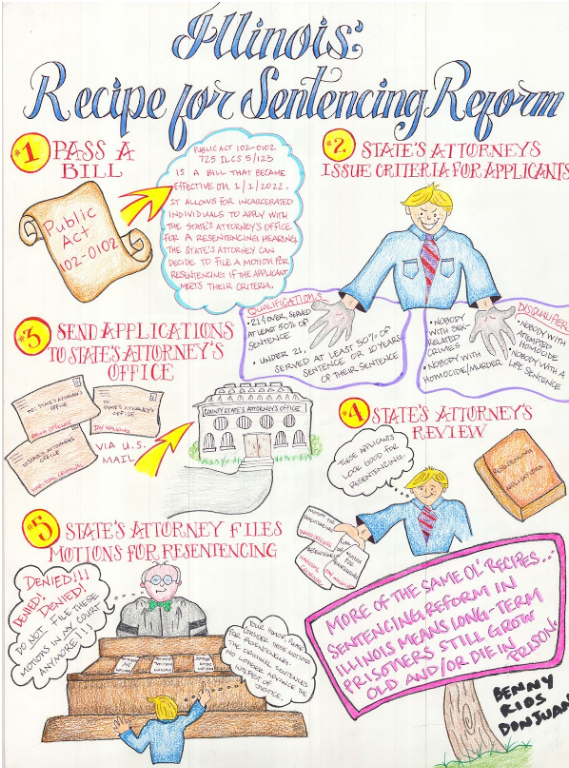 Illinois:
Recipe for Sentencing Reform
#1 PASS A
BILL
Public
Act
102-0102
PUBLIC ACT 102-0102
725 ILCS 5/123
IS A BILL THAT BECAME
EFFECTIVE ON 1/1/2022.
IT ALLOWS FOR INCARCERATED
INDIVIDUALS TO APPLY WITH
THE STATE'S ATTORNEY'S OFFICE
FOR A RESENTENCING HEARING.
THE STATE'S ATTORNEY CAN
DECIDE TO FILE A MOTION FOR
RESENTENCING IF THE APPLICANT
MEETS THEIR CRITERIA.
#2 STATE'S ATTORNEY'S
ISSUE CRITERIA FOR APPLICANTS
QUALIFICATIONS
• 21 & OVER, SERVED
AT LEAST 50% OF
SENTENCE
• UNDER 21,
SERVED AT LEAST 50% OF
SENTENCE OR 10 YEARS
OF THEIR SENTENCE
DISQUALIFIERS
• NOBODY
WITH SEX-
RELATED
CRIMES
• NOBODY WITH
HOMICIDE/MURDER
• NOBODY WITH
ATTEMPTED
HOMICIDE
• NOBODY WITH A
LIFE SENTENCE
#3 SEND APPLICATIONS
TO STATE'S ATTORNEY'S
OFFICE
TO: STATE'S ATTORNEY'S
OFFICE
STATE'S ATTORNEY'S
OFFICE
JAY WALKING
STATE'S ATTORNEY'S
OFFICE
VIA U.S.
MAIL
COUNTY STATE'S ATTORNEY'S OFFICE
#4 STATE'S ATTORNEY'S
REVIEW
THESE APPLICANTS
LOOK GOOD FOR
RESENTENCING.
#5 STATE'S ATTORNEY FILES
MOTIONS FOR RESENTENCING
DENIED!!!
DENIED!
DENIED!
DO NOT FILE THESE
MOTIONS IN MY COURT
ANYMORE!!!
YOUR HONOR, PLEASE
CONSIDER THESE MOTIONS
FOR RESENTENCING.
THE ORIGINAL SENTENCES
NO LONGER ADVANCE THE
INTEREST OF
JUSTICE.
MORE OF THE SAME OL' RECIPES...
SENTENCING REFORM IN
ILLINOIS MEANS LONG-TERM
PRISONERS STILL GROW
OLD AND/OR DIE IN PRISON
BENNY
RIOS
DONJUAN